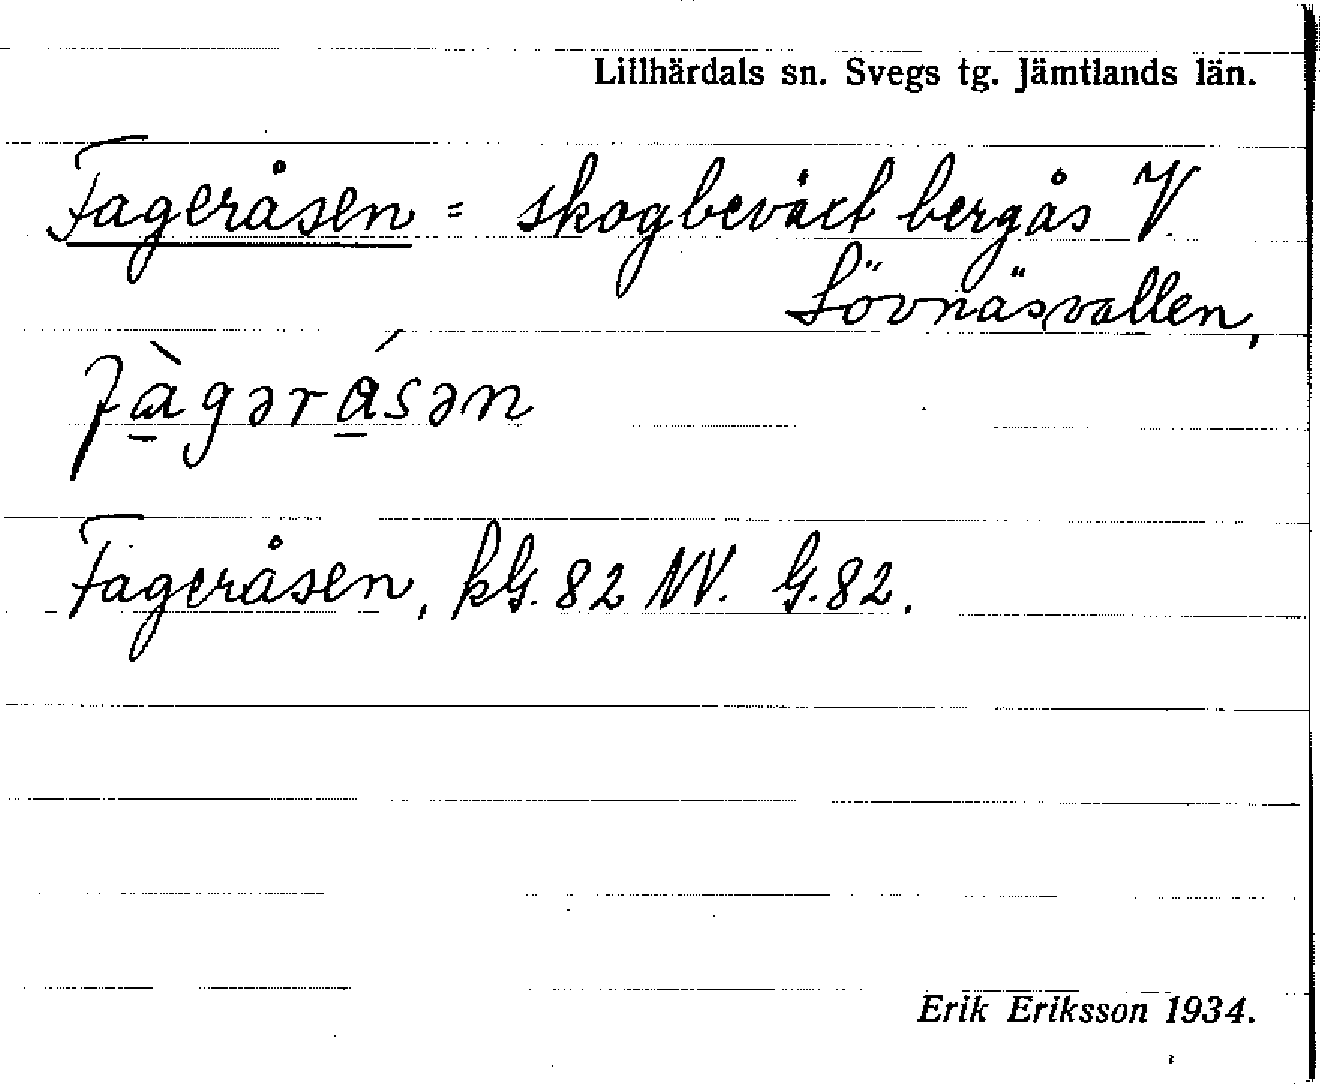 Lillhärdals sn. Svegs tg. Jämtlands län.
Fageråsen = skogbeväxt bergås V.
Lövnäsvallen,
fàgərásən
Fageråsen, kG. 82 NV. G. 82.
Erik Eriksson 1934.